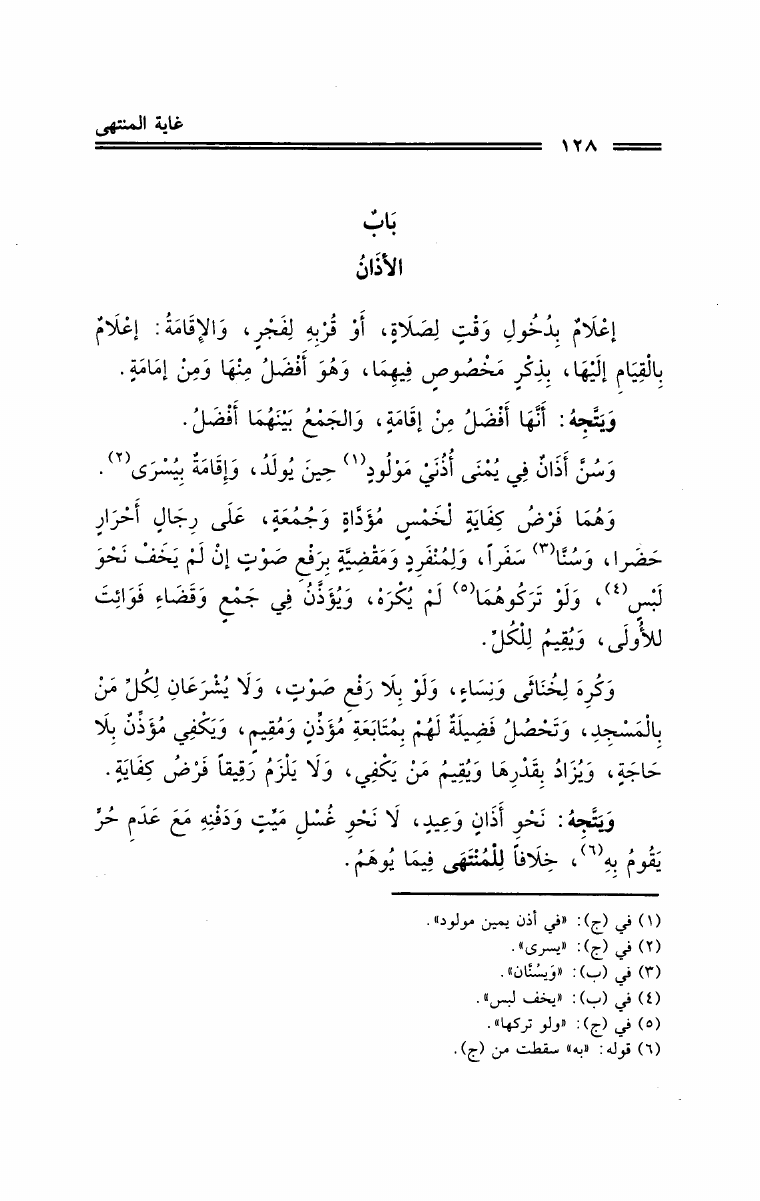 غاية المنتهى
١٢٨
بَابٌ
الأَذَانُ
إعْلَامٌ بِدُخُولِ وَقْتٍ لِصَلَاةٍ، أَوْ قُرْبِهِ لِفَجْرٍ، وَالإِقَامَةُ: إعْلَامٌ
بِالْقِيَامِ إلَيْهَا، بِذِكْرٍ مَخْصُوصٍ فِيهِمَا، وَهُوَ أَفْضَلُ مِنْهَا وَمِنْ إمَامَةٍ.
وَيَتَّجِهُ: أَنَّهَا أَفْضَلُ مِنْ إقَامَةٍ، وَالجَمْعُ بَيْنَهُمَا أَفْضَلُ.
وَسُنَّ أَذَانٌ فِي يُمْنَى أُذُنَيْ مَوْلُودٍ(١) حِينَ يُولَدُ، وَإِقَامَةٌ بِيُسْرَى(٢).
وَهُمَا فَرْضُ كِفَايَةٍ لْخَمْسٍ مُؤَدَّاةٍ وَجُمُعَةٍ، عَلَى رِجَالٍ أَحْرَارٍ
حَضَرا، وَسُنَّا(٣) سَفَراً، وَلِمُنْفَرِدٍ وَمَقْضِيَّةٍ بِرَفْعِ صَوْتٍ إنْ لَمْ يَخَفْ نَحْوَ
لَبْسٍ(٤)، وَلَوْ تَرَكُوهُمَا(٥) لَمْ يُكْرَهْ، وَيُؤَذَّنُ فِي جَمْعٍ وَقَضَاءِ فَوَائِتَ
للأُولَى، وَيُقِيمُ لِلْكُلِّ.
وَكُرِهَ لِخُنَاثَى وَنِسَاءٍ، وَلَوْ بِلَا رَفْعِ صَوْتٍ، وَلَا يُشْرَعَانِ لِكُلِّ مَنْ
بِالْمَسْجِدِ، وَتَحْصُلُ فَضِيلَةٌ لَهُمْ بِمُتَابَعَةِ مُؤَذِّنٍ وَمُقِيمٍ، وَيَكْفِي مُؤَذِّنٌ بِلَا
حَاجَةٍ، وَيُزَادُ بِقَدْرِهَا وَيُقِيمُ مَنْ يَكْفِي، وَلَا يَلْزَمُ رَقِيقاً فَرْضُ كِفَايَةٍ.
وَيَتَّجِهُ: نَحْو أَذَانٍ وَعِيدٍ، لَا نَحْوِ غُسْلِ مَيِّتٍ وَدَفْنِهِ مَعَ عَدَمِ حُرٍّ
يَقُومُ بِهِ(٦)، خِلَافاً لِلْمُنْتَهَى فِيمَا يُوهَمُ.
(١) في (ج): «في أذن يمين مولود».
(٢) في (ج): «يسرى».
(٣) في (ب): «وَيسُنَّان».
(٤) في (ب): «يخف لبس».
(٥) في (ج): «ولو تركها».
(٦) قوله: «به» سقطت من (ج).